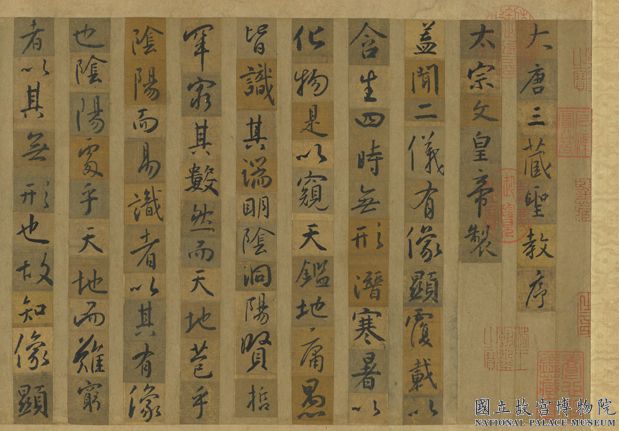 大唐三藏聖教序
太宗文皇帝製
蓋聞二儀有像顯覆載以
含生四時無形潛寒暑以
化物是以窺天鑑地庸愚
皆識其端明陰洞陽賢哲
罕窮其數然而天地苞乎
陰陽而易識者以其有像
也陰陽處乎天地而難窮
者以其無形也故知像顯
國立故宮博物院
NATIONAL PALACE MUSEUM